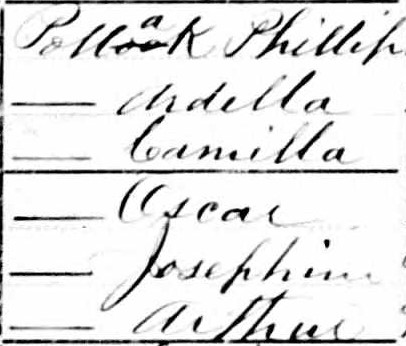 Pollak Phillip
— Ardella
— Camilla
— Oscar
— Josephine
— Arthur